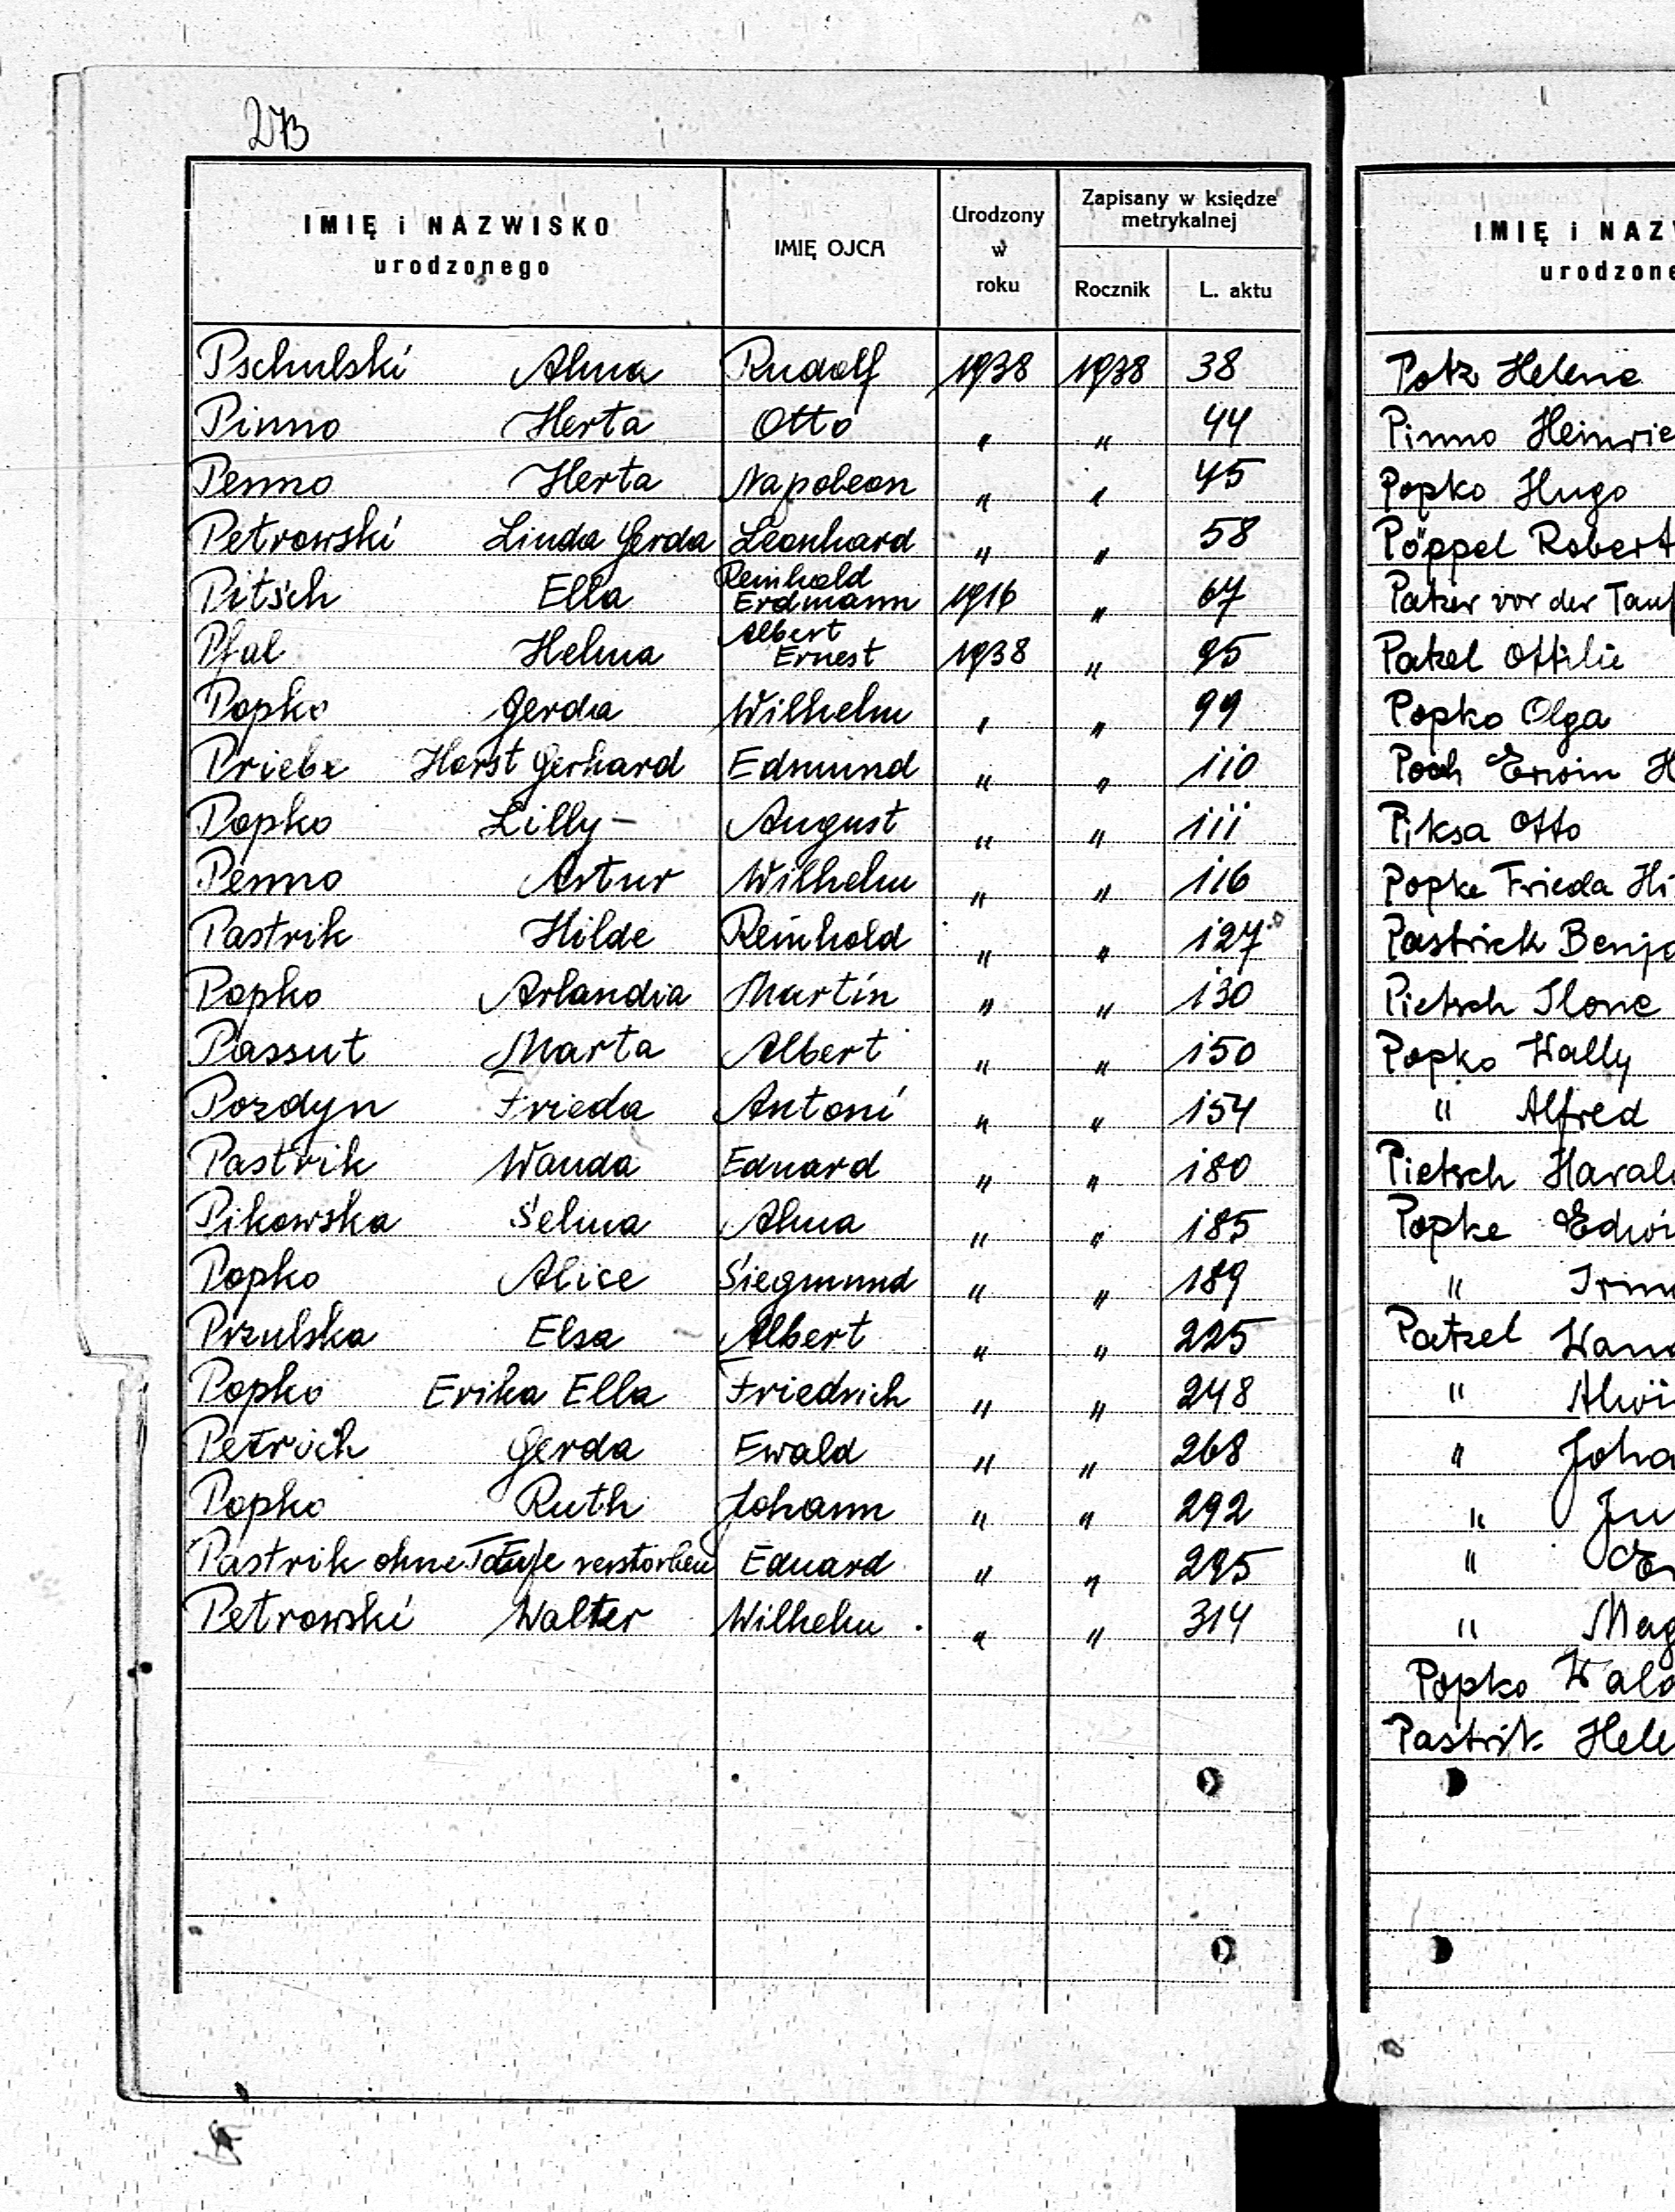 273
IMIĘ i NAZWISKO
urodzonego
IMIĘ OJCA
Urodzony
w
roku
Zapisany w księdze
metrykalnej
Rocznik L. aktu
Pschulski Alma Rudolf 1938 1938 38
Pinno Herta Otto " " 44
Penno Herta Napoleon " " 45
Petrowski Linda Gerda Leonhard " " 58
Pitsch Ella Reinhold Erdmann 1916 " 67
Pfal Helma Albert Ernest 1938 " 95
Popko Gerda Wilhelm " " 99
Priebe Horst Gerhard Edmund " " 110
Popko Lilly – August " " 111
Penno Artur Wilhelm " " 116
Pastrik Hilde Reinhold " " 127
Popko Arlandia Martin " " 130
Passut Marta Albert " " 150
Pozdyn Frieda Antoni " " 154
Pastrik Wanda Eduard " " 180
Pikowska Selma Alma " " 185
Popko Alice Siegmund " " 189
Przulska Elsa Albert " " 225
Popko Erika Ella Friedrich " " 248
Petrich Gerda Ewald " " 268
Popko Ruth Johann " " 292
Pastrik ohne Taufe verstorben Eduard " " 295
Petrowski Walter Wilhelm " " 314
IMIĘ i NAZW
urodzone
Potz Helene
Pinno Heinrie
Popko Hugo
Pöppel Robert
Patzer vor der Tauf
Patzel Ottilie
Popko Olga
Poch Erwin H
Piksa Otto
Popke Frieda Hi
Pastrick Benja
Pietsch Ilone
Popko Wally
" Alfred
Pietsch Haral
Popke Edwi
" Irm
Patzel Wan
" Alwi
" Joha
" Ju
" Er
" Mag
Popko Wald
Pastrik Hele